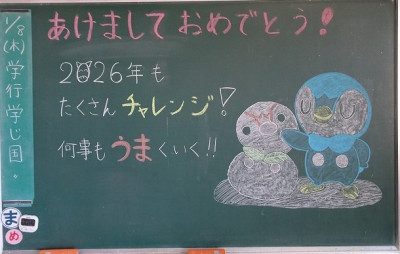 あけましておめでとう!
2026年も
たくさんチャレンジ!
何事もうまくいく!!
1/8
(木)
学
行
学
じ
国。
ま
め